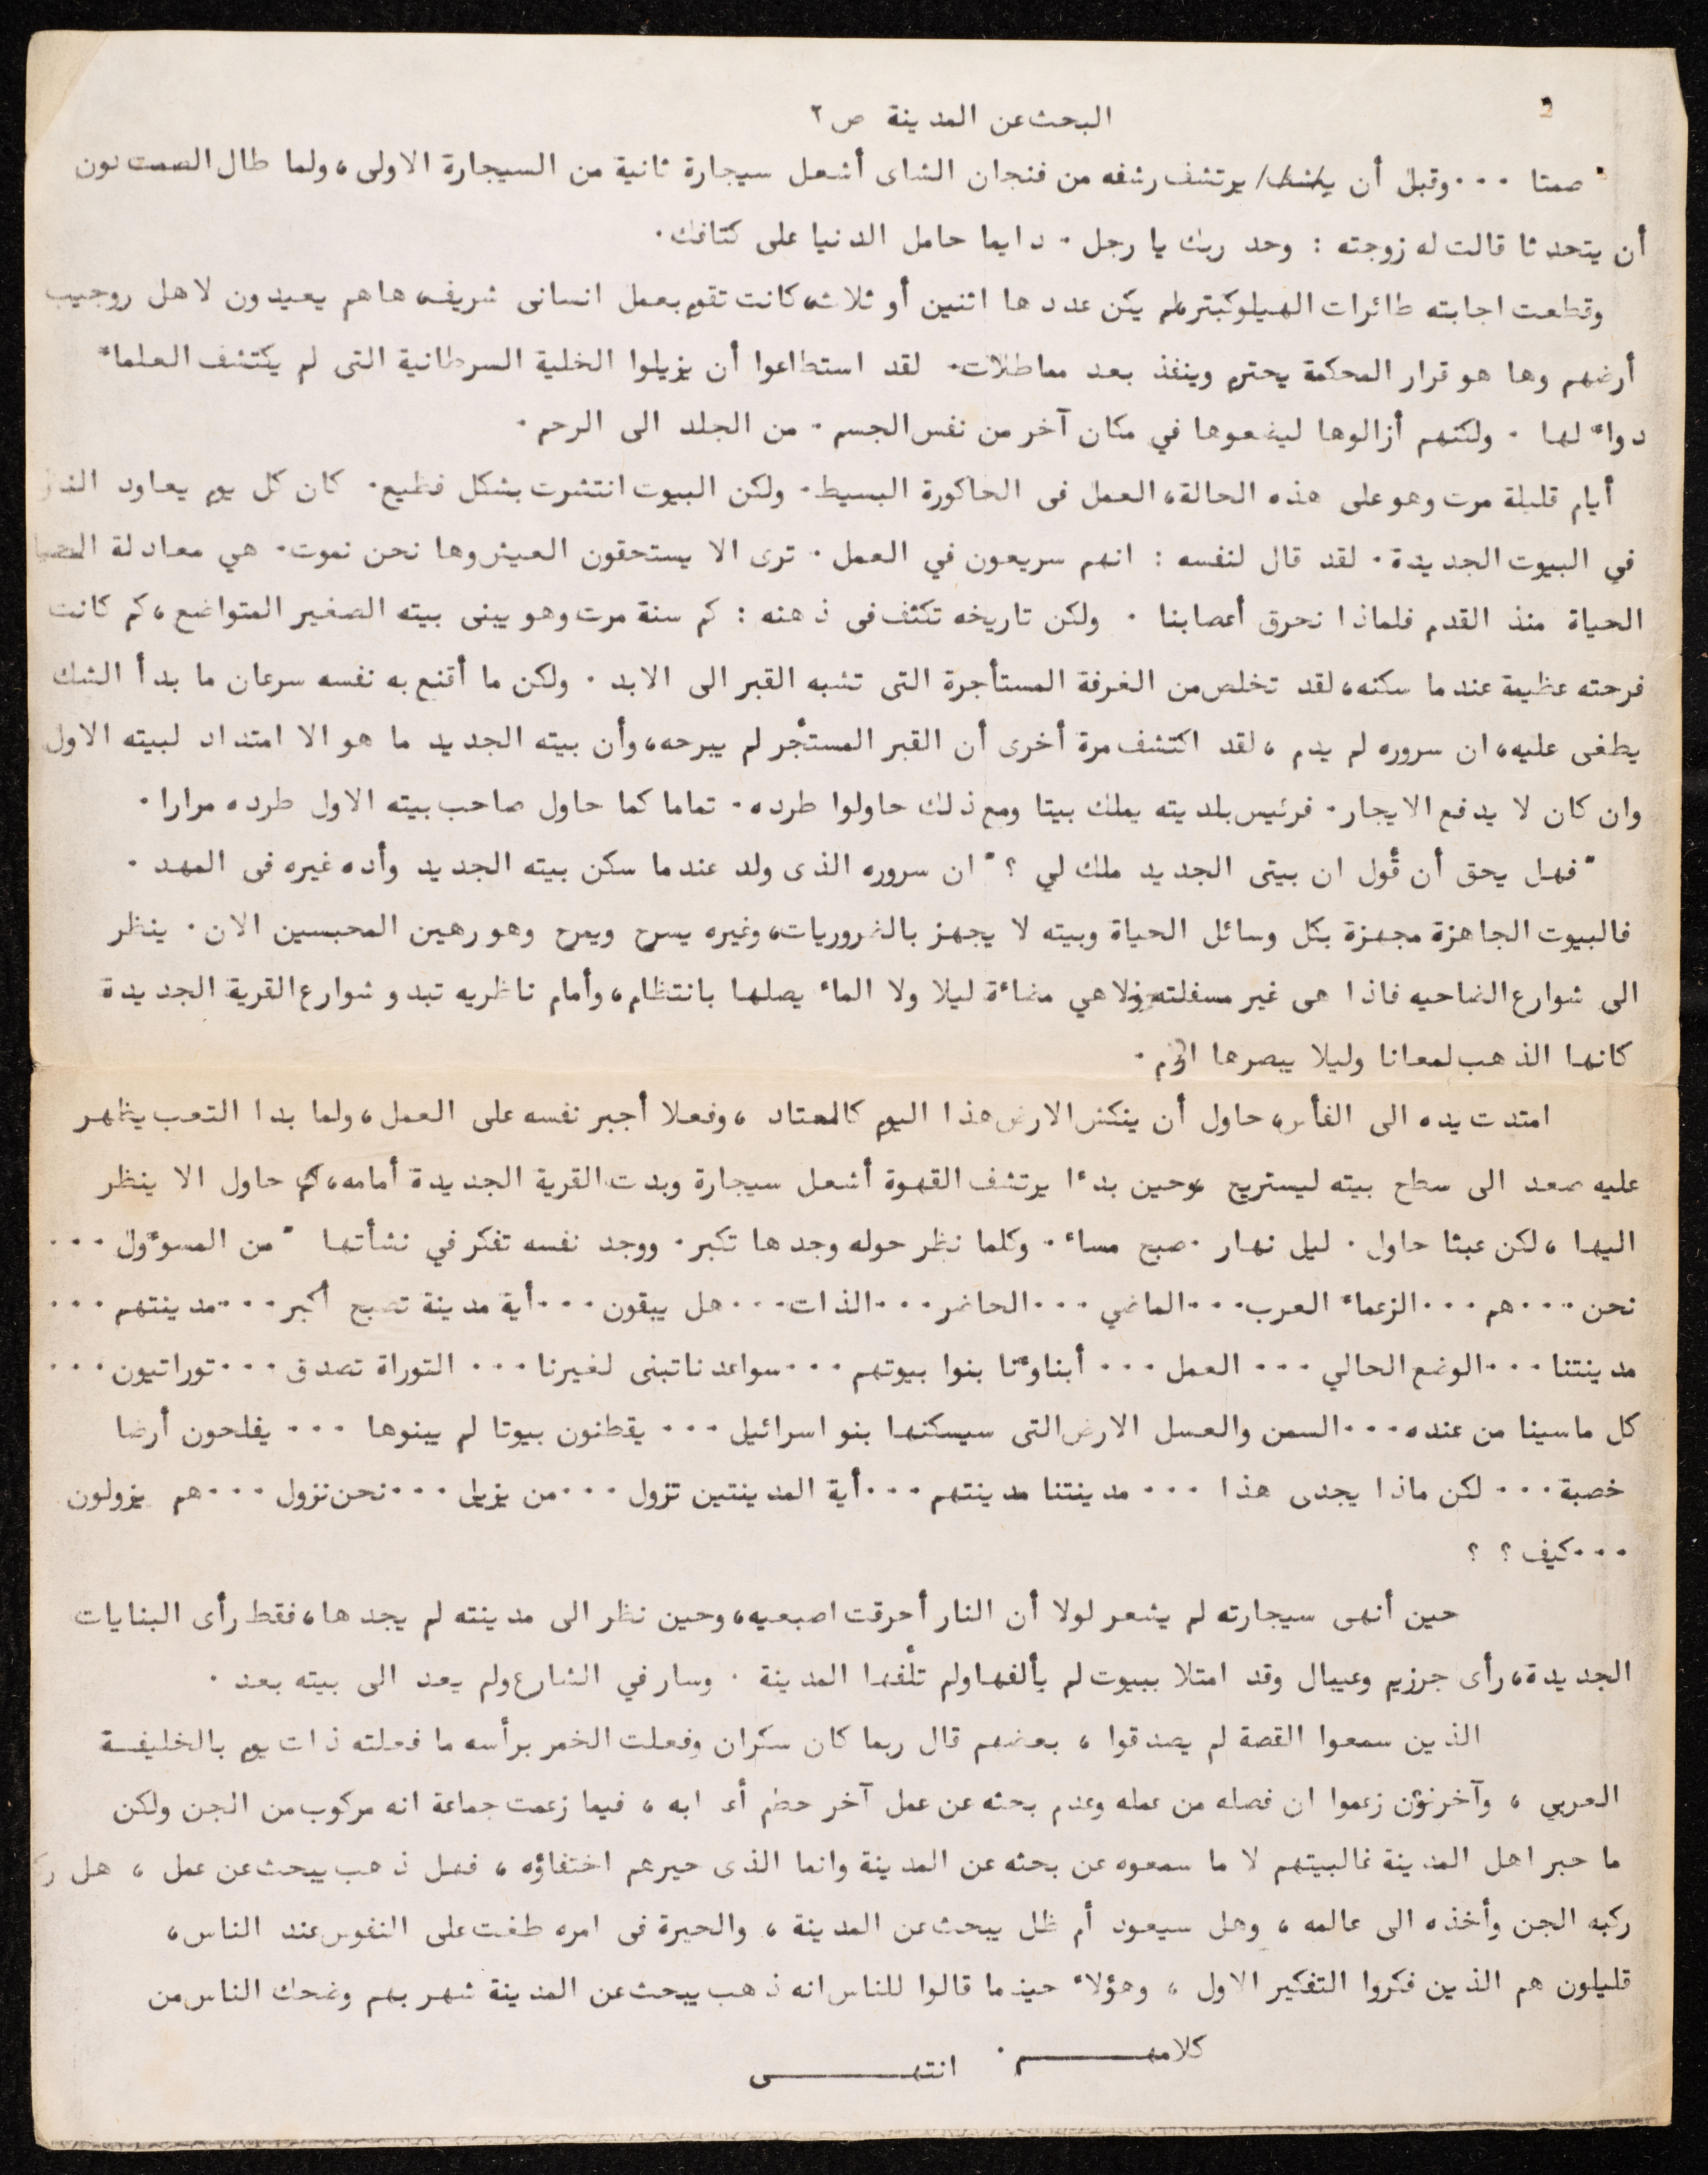 2
البحث عن المدينة ص ٢
صمتا ... وقبل أن يرتشف رشفه من فنجان الشاى أشعل سيجارة ثانية من السيجارة الاولى، ولما طال الصمت دون
أن يتحدثا قالت له زوجته : وحد ربك يا رجل . دايما حامل الدنيا على كتافك.
وقطعت اجابته طائرات الهيلوكبتر، لم يكن عددها اثنين أو ثلاث، كانت تقوم بعمل انسانى شريف، هاهم يعيدون لاهل روجيب
أرضهم وها هو قرار المحكمة يحترم وينفذ بعد مماطلات. لقد استطاعوا أن يزيلوا الخلية السرطانية التى لم يكتشف العلماء
دواء لها . ولكنهم أزالوها ليضعوها في مكان آخر من نفس الجسم . من الجلد الى الرحم .
أيام قليلة مرت وهو على هذه الحالة، العمل فى الحاكورة البسيط. ولكن البيوت انتشرت بشكل فظيع. كان كل يوم يعاود
في البيوت الجديدة. لقد قال لنفسه : انهم سريعون في العمل . ترى الا يستحقون العيش وها نحن نموت. هي معادلة
الحياة منذ القدم فلماذا نحرق أعصابنا . ولكن تاريخه تكثف فى ذهنه : كم سنة مرت وهو يبنى بيته الصغير المتواضع، كم كانت
فرحته عظيمة عندما سكنه، لقد تخلص من الغرفة المستأجرة التى تشبه القبر الى الابد . ولكن ما أقنع به نفسه سرعان ما بدأ الشك
يطغى عليه، ان سروره لم يدم ، لقد اكتشف مرة أخرى أن القبر المستأجر لم يبرحه، وأن بيته الجديد ما هو الا امتداد لبيته الاول
وان كان لا يدفع الايجار. فرئيس بلديته يملك بيتا ومع ذلك حاولوا طرده. تماما كما حاول صاحب بيته الاول طرده مرارا .
" فهل يحق أن أقول ان بيتى الجديد ملك لي ؟ " ان سروره الذى ولد عندما سكن بيته الجديد وأده غيره فى المهد .
فالبيوت الجاهزة مجهزة بكل وسائل الحياة وبيته لا يجهز بالضروريات، وغيره يسرح ويمرح وهو رهين المحبسين الان. ينظر
الى شوارع الضاحيه فاذا هى غير مسفلته ولا هي مضاءة ليلا ولا الماء يصلها بانتظام، وأمام ناظريه تبدو شوارع القرية الجديدة
كانها الذهب لمعانا وليلا يبصرها .
امتدت يده الى الفأس، حاول أن ينكش الارض هذا اليوم كالمعتاد ، وفعلا أجبر نفسه على العمل، ولما بدا التعب يظهر
عليه صعد الى سطح بيته ليستريح وحين بدءا يرتشف القهوة أشعل سيجارة وبدت القرية الجديدة أمامه، كم حاول الا ينظر
اليها ، لكن عبثا حاول . ليل نهار . صبح مساء . وكلما نظر حوله وجدها تكبر. ووجد نفسه تفكر في نشأتها " من المسوءول ...
نحن ...هم ...الزعماء العرب...الماضي ...الحاضر...الذات...هل يبقون ...أية مدينة تصبح أكبر...مدينتهم ...
مدينتنا ...الوضع الحالي ... العمل ... أبناوءنا بنوا بيوتهم ...سواعدنا تبنى لغيرنا ... التوراة تصدق ...توراتيون ...
كل ماسينا من عنده ...السمن والعسل الارض التى سيسكنها بنو اسرائيل ... يقطنون بيوتا لم يبنوها ... يفلحون أرضا
خصبة ... لكن ماذا يجدى هذا ... مدينتنا مدينتهم ...أية المدينتين تزول ...من يزيل ...نحن نزول ...هم يزولون
...كيف ؟ ؟
حين أنهى سيجارته لم يشعر لولا أن النار أحرقت اصبعيه، وحين نظر الى مدينته لم يجدها، فقط رأى البنايات
الجديدة، رأى جرزيم وعيبال وقد امتلا ببيوت لم يألفها ولم تألفها المدينة . وسار في الشارع ولم يعد الى بيته بعد .
الذين سمعوا القصة لم يصدقوا ، بعضهم قال ربما كان سكران وفعلت الخمر برأسه ما فعلته ذات يوم بالخليفة
العربي ، وآخرون زعموا ان فصله من عمله وعدم بحثه عن عمل آخر حطم أعصابه ، فيما زعمت جماعة انه مركوب من الجن ولكن
ما حير اهل المدينة غالبيتهم لا ما سمعوه عن بحثه عن المدينة وانما الذى حيرهم اختفاؤه ، فهل ذهب يبحث عن عمل ، هل
ركبه الجن وأخذه الى عالمه ، وهل سيعود أم ظل يبحث عن المدينة ، والحيرة فى امره طغت على النفوس عند الناس،
قليلون هم الذين فكروا التفكير الاول ، وهؤلاء حينما قالوا للناس انه ذهب يبحث عن المدينة شهر بهم وضحك الناس من
كلامهـــــم .
انتهـــــى